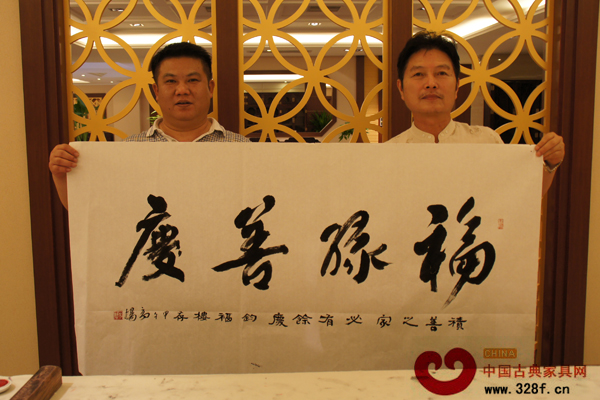 福緣善慶
積善之家必有餘慶 鈞福樓存
CHINA
中国古典家具网
www.328f.cn